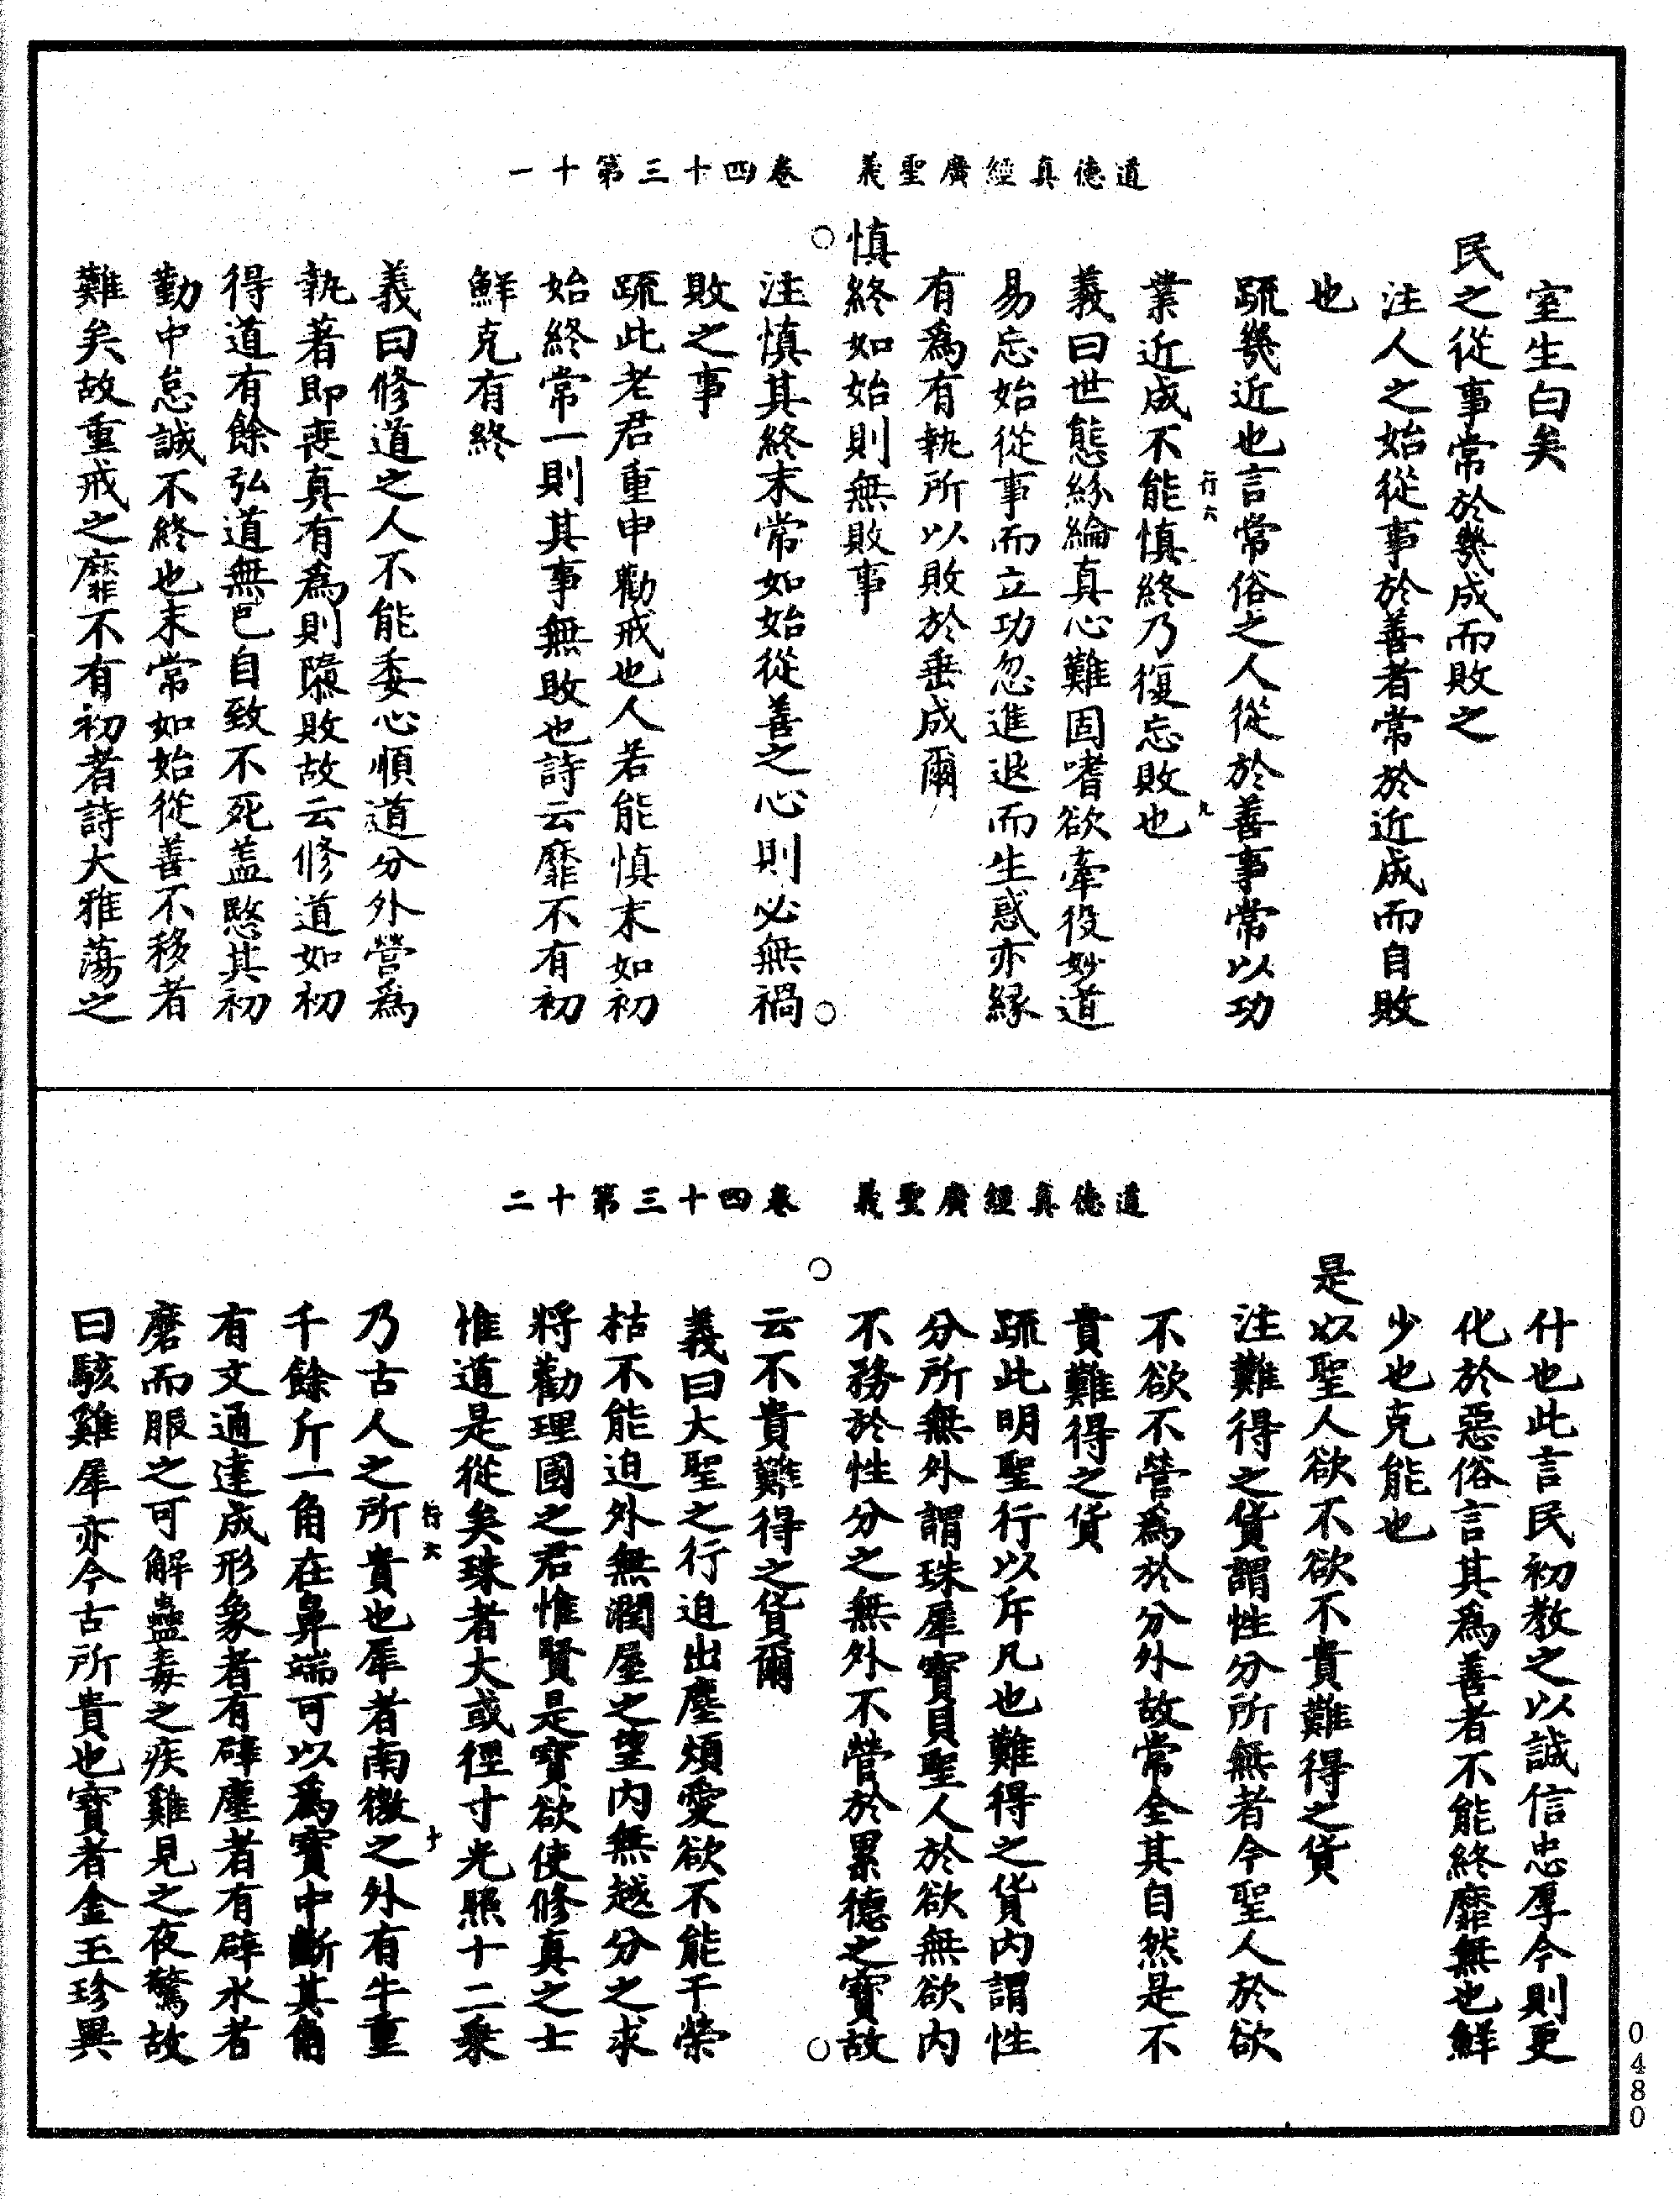 道德真經廣聖義　卷四十三第十一
室生白矣
民之從事常於幾成而敗之
注人之始從事於善者常於近成而自敗
也
疏幾近也言常俗之人從於善事常以功
行六　九
業近成不能慎終乃復忘敗也
義曰世態絲綸真心難固嗜欲牽役妙道
易忘始從事而立功忽進退而生惑亦緣
有為有執所以敗於垂成爾
慎終如始則無敗事
注慎其終末常如始從善之心則必無禍
敗之事
疏此老君重申勸戒也人若能慎末如初
始終常一則其事無敗也詩云靡不有初
鮮克有終
義曰修道之人不能委心順道分外營為
執著即喪真有為則隳敗故云修道如初
得道有餘弘道無已自致不死蓋愍其初
勤中怠誠不終也末常如始從善不移者
難矣故重戒之靡不有初者詩大雅蕩之
道德真經廣聖義　卷四十三第十二
什也此言民初教之以誠信忠厚今則更
化於惡俗言其為善者不能終靡無也鮮
少也克能也
是以聖人欲不欲不貴難得之貨
注難得之貨謂性分所無者今聖人於欲
不欲不營為於分外故常全其自然是不
貴難得之貨
疏此明聖行以斥凡也難得之貨內謂性
分所無外謂珠犀寶貝聖人於欲無欲內
不務於性分之無外不營於累德之寶故
云不貴難得之貨爾
義曰大聖之行迫出塵煩愛欲不能干榮
枯不能迫外無潤屋之望內無越分之求
將勸理國之君惟賢是寶欲使修真之士
惟道是從矣珠者大或徑寸光照十二乘
行六　十
乃古人之所貴也犀者南徼之外有牛重
千餘斤一角在鼻端可以為寶中斷其角
有文通達成形象者有辟塵者有辟水者
磨而服之可解蠱毒之疾雞見之夜驚故
曰駭雞犀亦今古所貴也寶者金玉珍異
0480